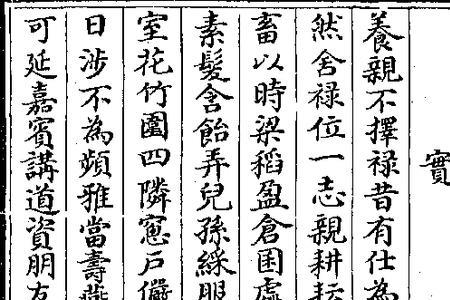 實
養親不擇祿昔有仕為
然舍祿位一志親耕耘
畜以時梁稻盈倉囷虛
素髮含飴弄兒孫綵服
室花竹圍四隣窓戶儼
日涉不為頻雅當壽燕
可延嘉賓講道資朋友